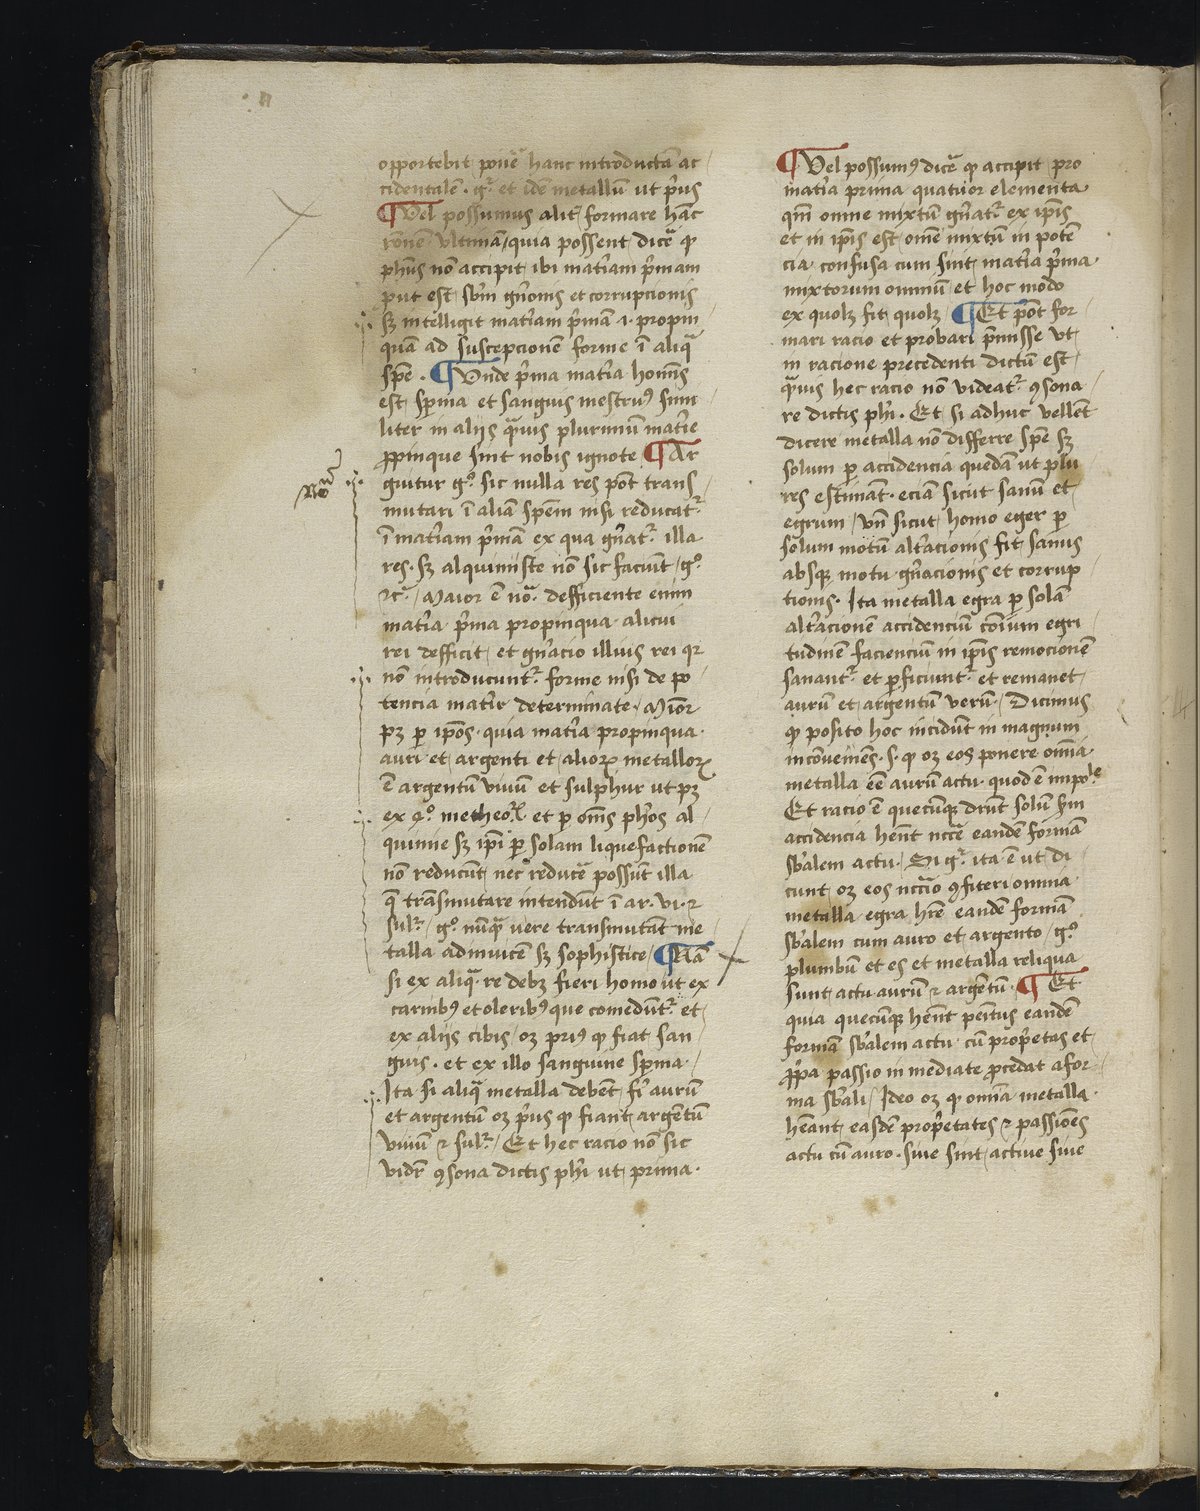 opportebit ponẽ hanc introductã ac
cidentalẽ . gͥ. et idẽ metallũ ut pͥus
¶ Vel possumus alit᷑ formare hãc
rõnẽ ultimã / quia possent dicẽ ꝙ
phũs nõ accipit ibi mat᷑iam pͥmam
put est sb᷑m gn᷑onis et corrupcionis
sꝫ intelligit mat᷑iam pͥmã .i. propin
quã ad suscepcionem forme ĩ aliqͣ
spẽ . ¶ Vnde pͥma mat᷑ia homĩs
est sperma et sanguis mestruꝰ simi
liter in aliis qͣuis plurimũ mat᷑ie
ꝓpinque sint nobis ignote ¶ Ar
Noͣ
guitur gͦ. sic nulla res põt trans
mutari ĩ aliã spẽm nisi reducat᷑
ĩ mat᷑iam pͥmã ex qua gn᷑at᷑ illa
res . sꝫ alquimiste nõ sic faciũt / gͦ.
⁊cͣ. / Maior ẽ noͣ. defficiente enim
mat᷑ia pͥma propinqua alicui
rei defficit et gn᷑acio illius rei qꝛ
nõ introducunt᷑ forme nisi de po
tencia mat᷑ie determinate . Mior᷑
pꝫ ꝑ ip̃os . quia mat᷑ia propinqua
auri et argenti et alioꝝ metalloꝝ
ẽ argentũ viuũ et sulphur ut pꝫ
ex 4ͦ. metheoꝝ et ꝑ om̃s ph᷑os al
quimie sꝫ ip̃i ꝑ solam liquefactionẽ
nõ reducũt nec reducẽ possũt illa
q̃ trãsmutare intendũt ĩ ar. vi. ⁊
sul᷑. / gͦ. nũqͣ vere transmutãt me
talla adinuicẽ sꝫ sophistice / ¶ Nã
si ex aliqͣ re debꝫ fieri homo ut ex
carnibꝰ et oleribꝰ que comedũt᷑ et
ex aliis cibis / oꝫ priꝰ ꝙ fiat san
guis . et ex illo sanguine sperma /
Ita si aliqͣ metalla debẽt fi᷑ aurũ
et argentũ oꝫ pͥus ꝙ fiant argẽtũ
viuũ ⁊ sul᷑. / Et hec racio nõ sic
vidr᷑ ꝯsona dictis ph᷑i ut prima .
¶ Vel possumꝰ dicẽ ꝙ accipit pro
mat᷑ia prima quatuor elementa
qm̃ omne mixtũ gn᷑at᷑ ex ip̃is
et in ip̃is est om̃e mixtũ in potẽ
cia confusa cum sint mat᷑ia pͥma
mixtorum omniũ et hoc modo
ex quolꝫ fit quolꝫ / ¶ Et põt for
mari racio et probari pͥmisse ut
in racione precedenti dictũ est
qͣuis hec racio nõ videat᷑ ꝯsona
re dictis ph᷑i . Et si adhuc vellẽt
dicere metalla nõ differre spẽ sꝫ
solum ꝑ accidencia quedã ut plu
res estimãt . eciã sicut sanũ et
egrum / vñ sicut homo eger ꝑ
solum motũ alt᷑acionis fit sanus
absqꝫ motu gn᷑acionis et corrup
tionis . Ita metalla egra ꝑ solã
alt᷑acionẽ accidenciũ cõiuʒ egri
tudinẽ faciencium in ip̃is remocionẽ
sanant᷑ et ꝑficiunt᷑ et remanet
aurũ et argentũ verũ . / Dicimus
ꝙ posito hoc incidũt in magnum
incõueniẽs . s . ꝙ oꝫ eos ponere om̃ia
metalla eẽ aurũ actu quod ẽ impoˡᵉ
Et racio ẽ quecũqꝫ drñt solũ scd᷑m
accidencia hñt nccͣẽ eandẽ formã
sb᷑alem actu . Si gͥ. ita ẽ ut di
cunt oꝫ eos nccͣio ꝯfiteri omnia
metalla egra hr̃e eandẽ formã
sb᷑alem cum auro et argento / gͦ.
plumbũ et es et metalla reliqua
sunt actu aurũ ⁊ argẽtũ . ¶ Et
quia quecũqꝫ hñt penitus eandẽ
formã sb᷑alem actu cũ proprietas et
ꝓpͥa passio in mediate ꝓcedat a for
ma sb᷑ali / Ideo oꝫ ꝙ om̃ia metalla
hẽant easdẽ proprietates ⁊ passiões
actu cũ auro . siue sint actiue siue